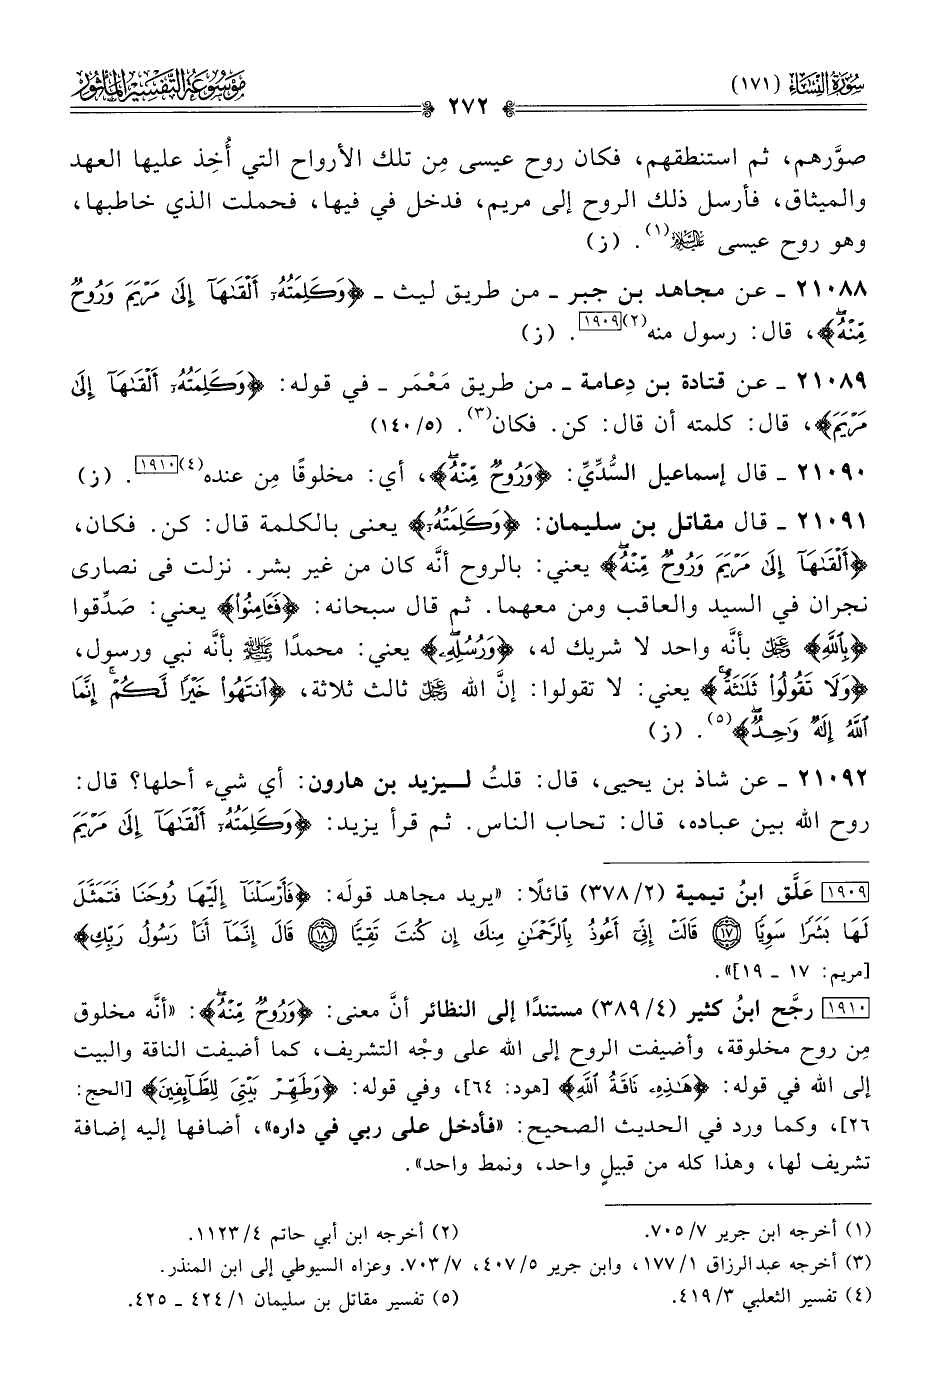 سورة النساء (١٧١)
٢٧٢
موسوعة التفسير المأثور
صوَّرهم، ثم استنطقهم، فكان روح عيسى مِن تلك الأرواح التي أُخِذ عليها العهد
والميثاق، فأرسل ذلك الروح إلى مريم، فدخل في فيها، فحملت الذي خاطبها،
وهو روح عيسى عليه السلام(١). (ز)
٢١٠٨٨ ـ عن مجاهد بن جبر ـ من طريق ليث ـ ﴿وَكَلِمَتُهُۥٓ أَلْقَىٰهَآ إِلَىٰ مَرْيَمَ وَرُوحٌ
مِّنْهُۖ﴾، قال: رسول منه(٢)[١٩٠٩]. (ز)
٢١٠٨٩ ـ عن قتادة بن دِعامة ـ من طريق مَعْمَر ـ في قوله: ﴿وَكَلِمَتُهُۥٓ أَلْقَىٰهَآ إِلَىٰ
مَرْيَمَ﴾، قال: كلمته أن قال: كن. فكان(٣). (٥/ ١٤٠)
٢١٠٩٠ ـ قال إسماعيل السُّدِّيِّ: ﴿وَرُوحٌ مِّنْهُۖ﴾، أي: مخلوقًا مِن عنده(٤)[١٩١٠]. (ز)
٢١٠٩١ ـ قال مقاتل بن سليمان: ﴿وَكَلِمَتُهُۥٓ﴾ يعنى بالكلمة قال: كن. فكان،
﴿أَلْقَىٰهَآ إِلَىٰ مَرْيَمَ وَرُوحٌ مِّنْهُۖ﴾ يعني: بالروح أنَّه كان من غير بشر. نزلت فى نصارى
نجران في السيد والعاقب ومن معهما. ثم قال سبحانه: ﴿فَـَٔامِنُوا۟﴾ يعني: صَدِّقوا
﴿بِٱللَّهِ﴾ عز وجل بأنَّه واحد لا شريك له، ﴿وَرُسُلِهِۦۖ﴾ يعني: محمدًا ﷺ بأنَّه نبي ورسول،
﴿وَلَا تَقُولُوا۟ ثَلَـٰثَةٌۚ﴾ يعني: لا تقولوا: إنَّ الله عز وجل ثالث ثلاثة، ﴿ٱنتَهُوا۟ خَيْرًا لَّكُمْۚ إِنَّمَا
ٱللَّهُ إِلَـٰهٌ وَٰحِدٌۖ﴾(٥). (ز)
٢١٠٩٢ ـ عن شاذ بن يحيى، قال: قلتُ لـيزيد بن هارون: أي شيء أحلها؟ قال:
روح الله بين عباده، قال: تحاب الناس. ثم قرأ يزيد: ﴿وَكَلِمَتُهُۥٓ أَلْقَىٰهَآ إِلَىٰ مَرْيَمَ
[١٩٠٩] عَلَّق ابنُ تيمية (٢/ ٣٧٨) قائلًا: «يريد مجاهد قولَه: ﴿فَأَرْسَلْنَآ إِلَيْهَا رُوحَنَا فَتَمَثَّلَ
لَهَا بَشَرًا سَوِيًّا ۝١٧ قَالَتْ إِنِّىٓ أَعُوذُ بِٱلرَّحْمَـٰنِ مِنكَ إِن كُنتَ تَقِيًّا ۝١٨ قَالَ إِنَّمَآ أَنَا۠ رَسُولُ رَبِّكِ﴾
[مريم: ١٧ ـ ١٩]».
[١٩١٠] رجَّح ابنُ كثير (٤/ ٣٨٩) مستندًا إلى النظائر أنَّ معنى: ﴿وَرُوحٌ مِّنْهُۖ﴾: «أنَّه مخلوق
مِن روح مخلوقة، وأضيفت الروح إلى الله على وجْه التشريف، كما أضيفت الناقة والبيت
إلى الله في قوله: ﴿هَـٰذِهِۦ نَاقَةُ ٱللَّهِ﴾ [هود: ٦٤]، وفي قوله: ﴿وَطَهِّرْ بَيْتِىَ لِلطَّآئِفِينَ﴾ [الحج:
٢٦]، وكما ورد في الحديث الصحيح: «فأدخل على ربي في داره»، أضافها إليه إضافة
تشريف لها، وهذا كله من قبيلٍ واحد، ونمط واحد».
(١) أخرجه ابن جرير ٧/ ٧٠٥. (٢) أخرجه ابن أبي حاتم ٤/ ١١٢٣.
(٣) أخرجه عبدالرزاق ١/ ١٧٧، وابن جرير ٥/ ٤٠٧، ٧/ ٧٠٣. وعزاه السيوطي إلى ابن المنذر.
(٤) تفسير الثعلبي ٣/ ٤١٩. (٥) تفسير مقاتل بن سليمان ١/ ٤٢٤ ـ ٤٢٥.